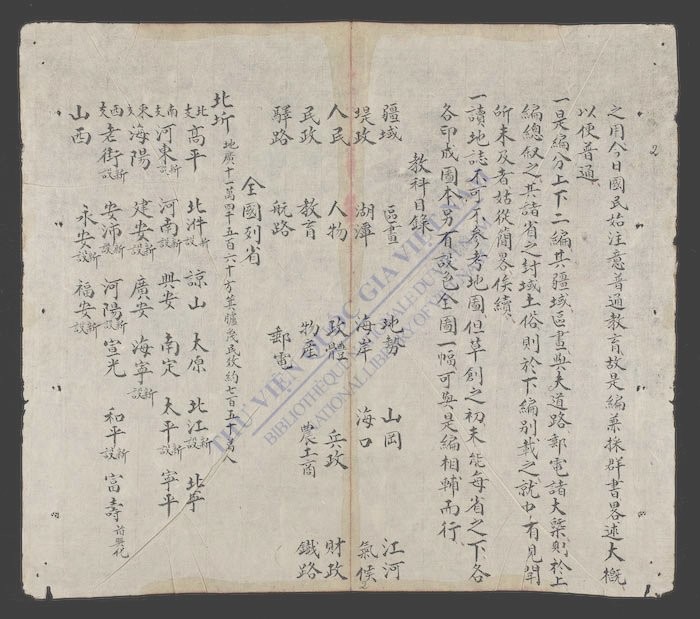 之用今日國民始注意普通教育故是編兼採群書畧述大概
以便普通
一是編分上下二編其疆域區畫與夫道路郵電諸大槩則於上
編總叙之其諸省之封域土俗則於下編別載之就中有見聞
所未及者姑從簡畧俟續
一讀地誌不可不參考地圖但草創之初未能每省之下各
各印成圖本另有設色全圖一幅可與是編相輔而行
教科目錄
疆域 區畫 地勢 山岡 江河
堤政 湖潭 海岸 海口 氣候
人民 人物 政體 兵政 財政
民政 教育 物產 農工商 鐵路
驛路 航路 郵電
全國列省
北圻 地廣十一萬四千五百六十方萁臚民數約七百五十萬人
北支 高平 北𣴓新設 諒山 太原 北江新設 北寧
南支 河東新設 河南新設 興安 南定 太平新設 寧平
東支 海陽 建安新設 廣安 海寧新設
西支 老街新設 安沛新設 河陽新設 宣光 和平新設 富壽前興化
山西 永安新設 福安新設
2
THƯ VIỆN QUỐC GIA VIỆT NAM
BIBLIOTHÈQUE NATIONALE DU VIETNAM
NATIONAL LIBRARY OF VIETNAM